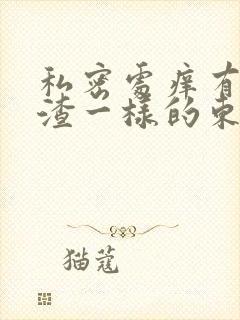 私密处痒有
渣一样的东
猫蔻